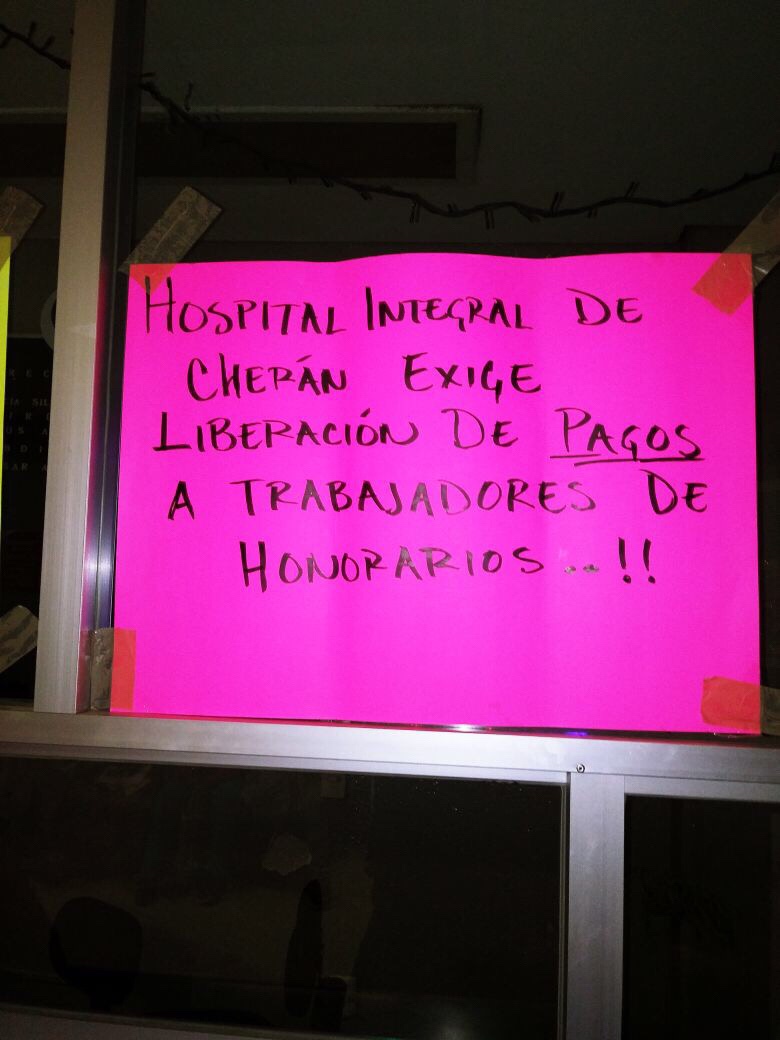 HOSPITAL INTEGRAL DE
CHERÁN EXIGE
LIBERACIÓN DE PAGOS
A TRABAJADORES DE
HONORARIOS...!!